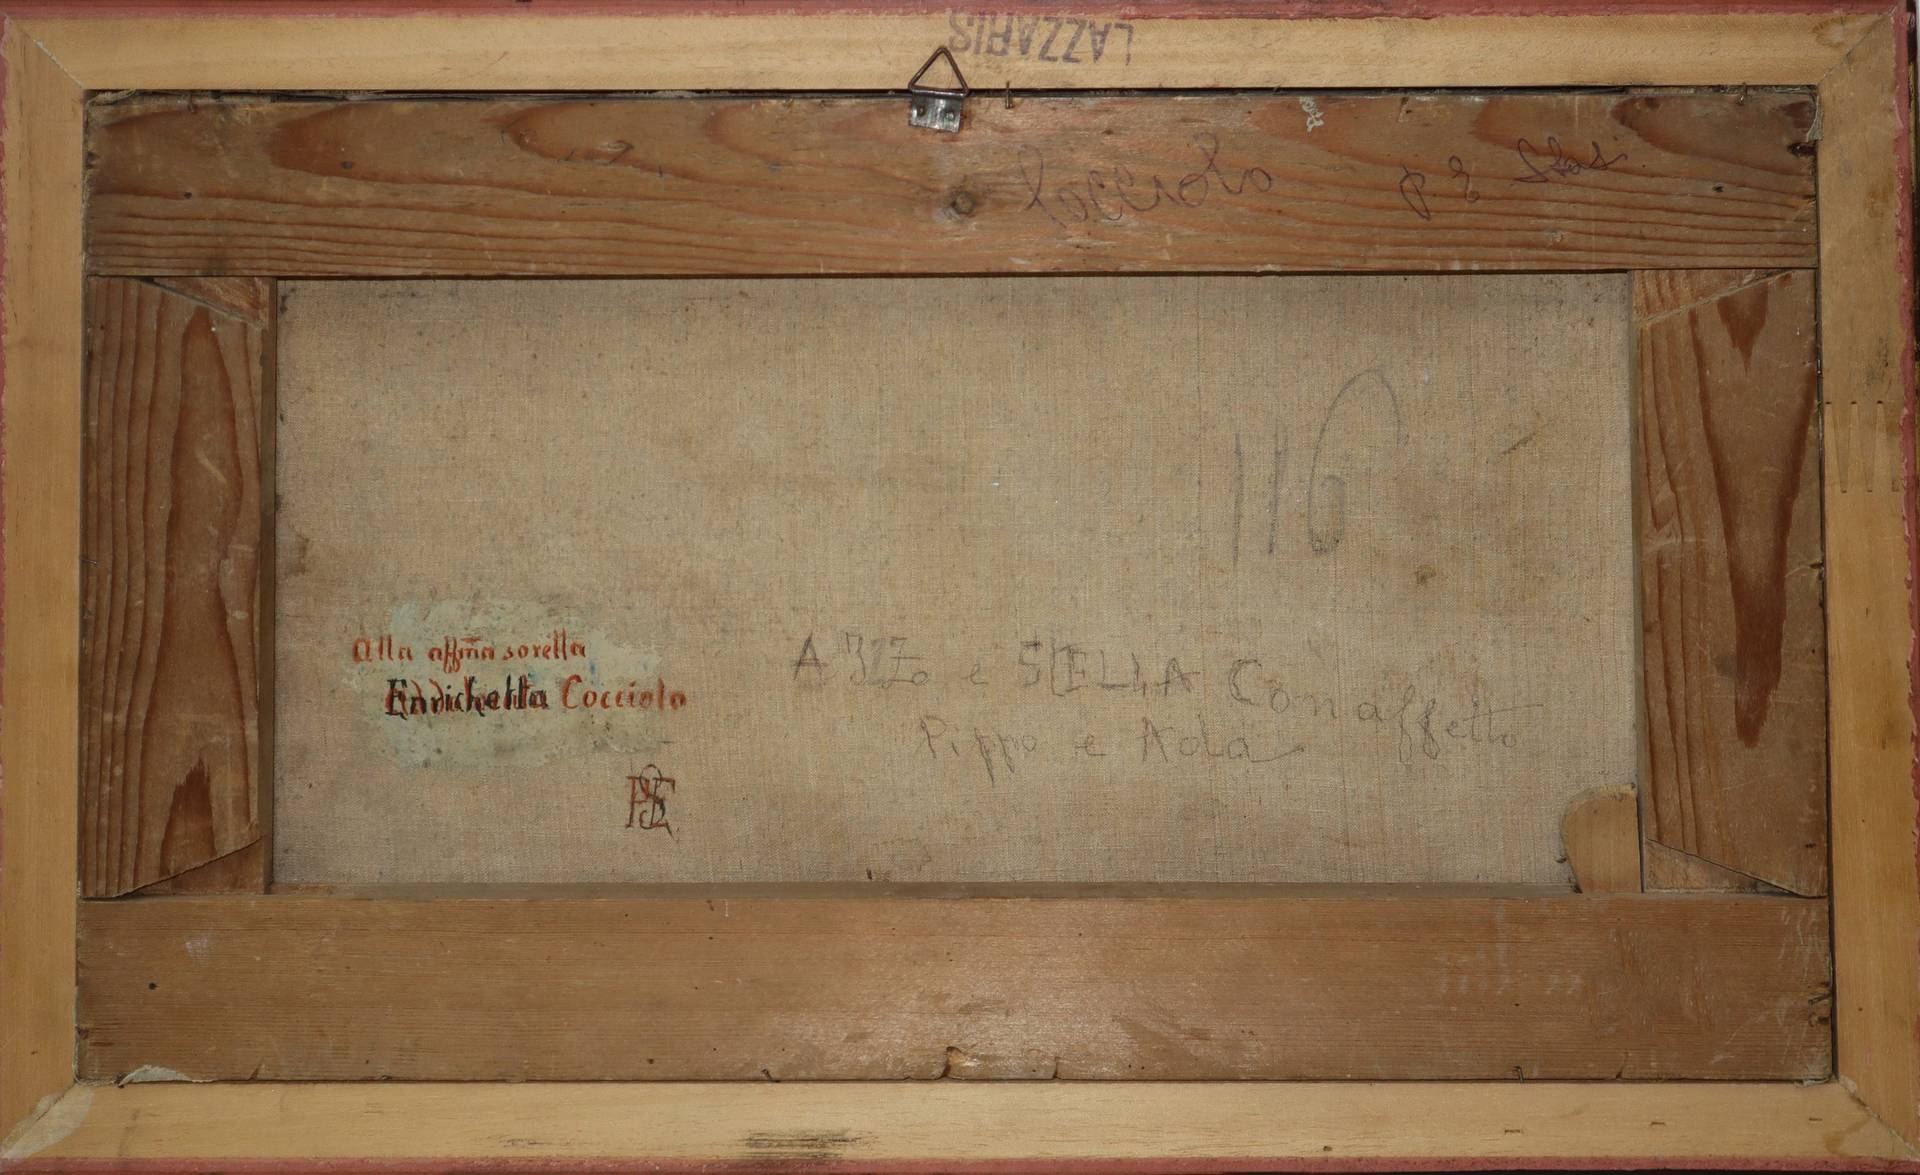 LAZZARIS
Cocciolo
116
Alla affm̃a sorella
Enrichetta Cocciolo
A e STELLA Con affetto
Pippo e Ada